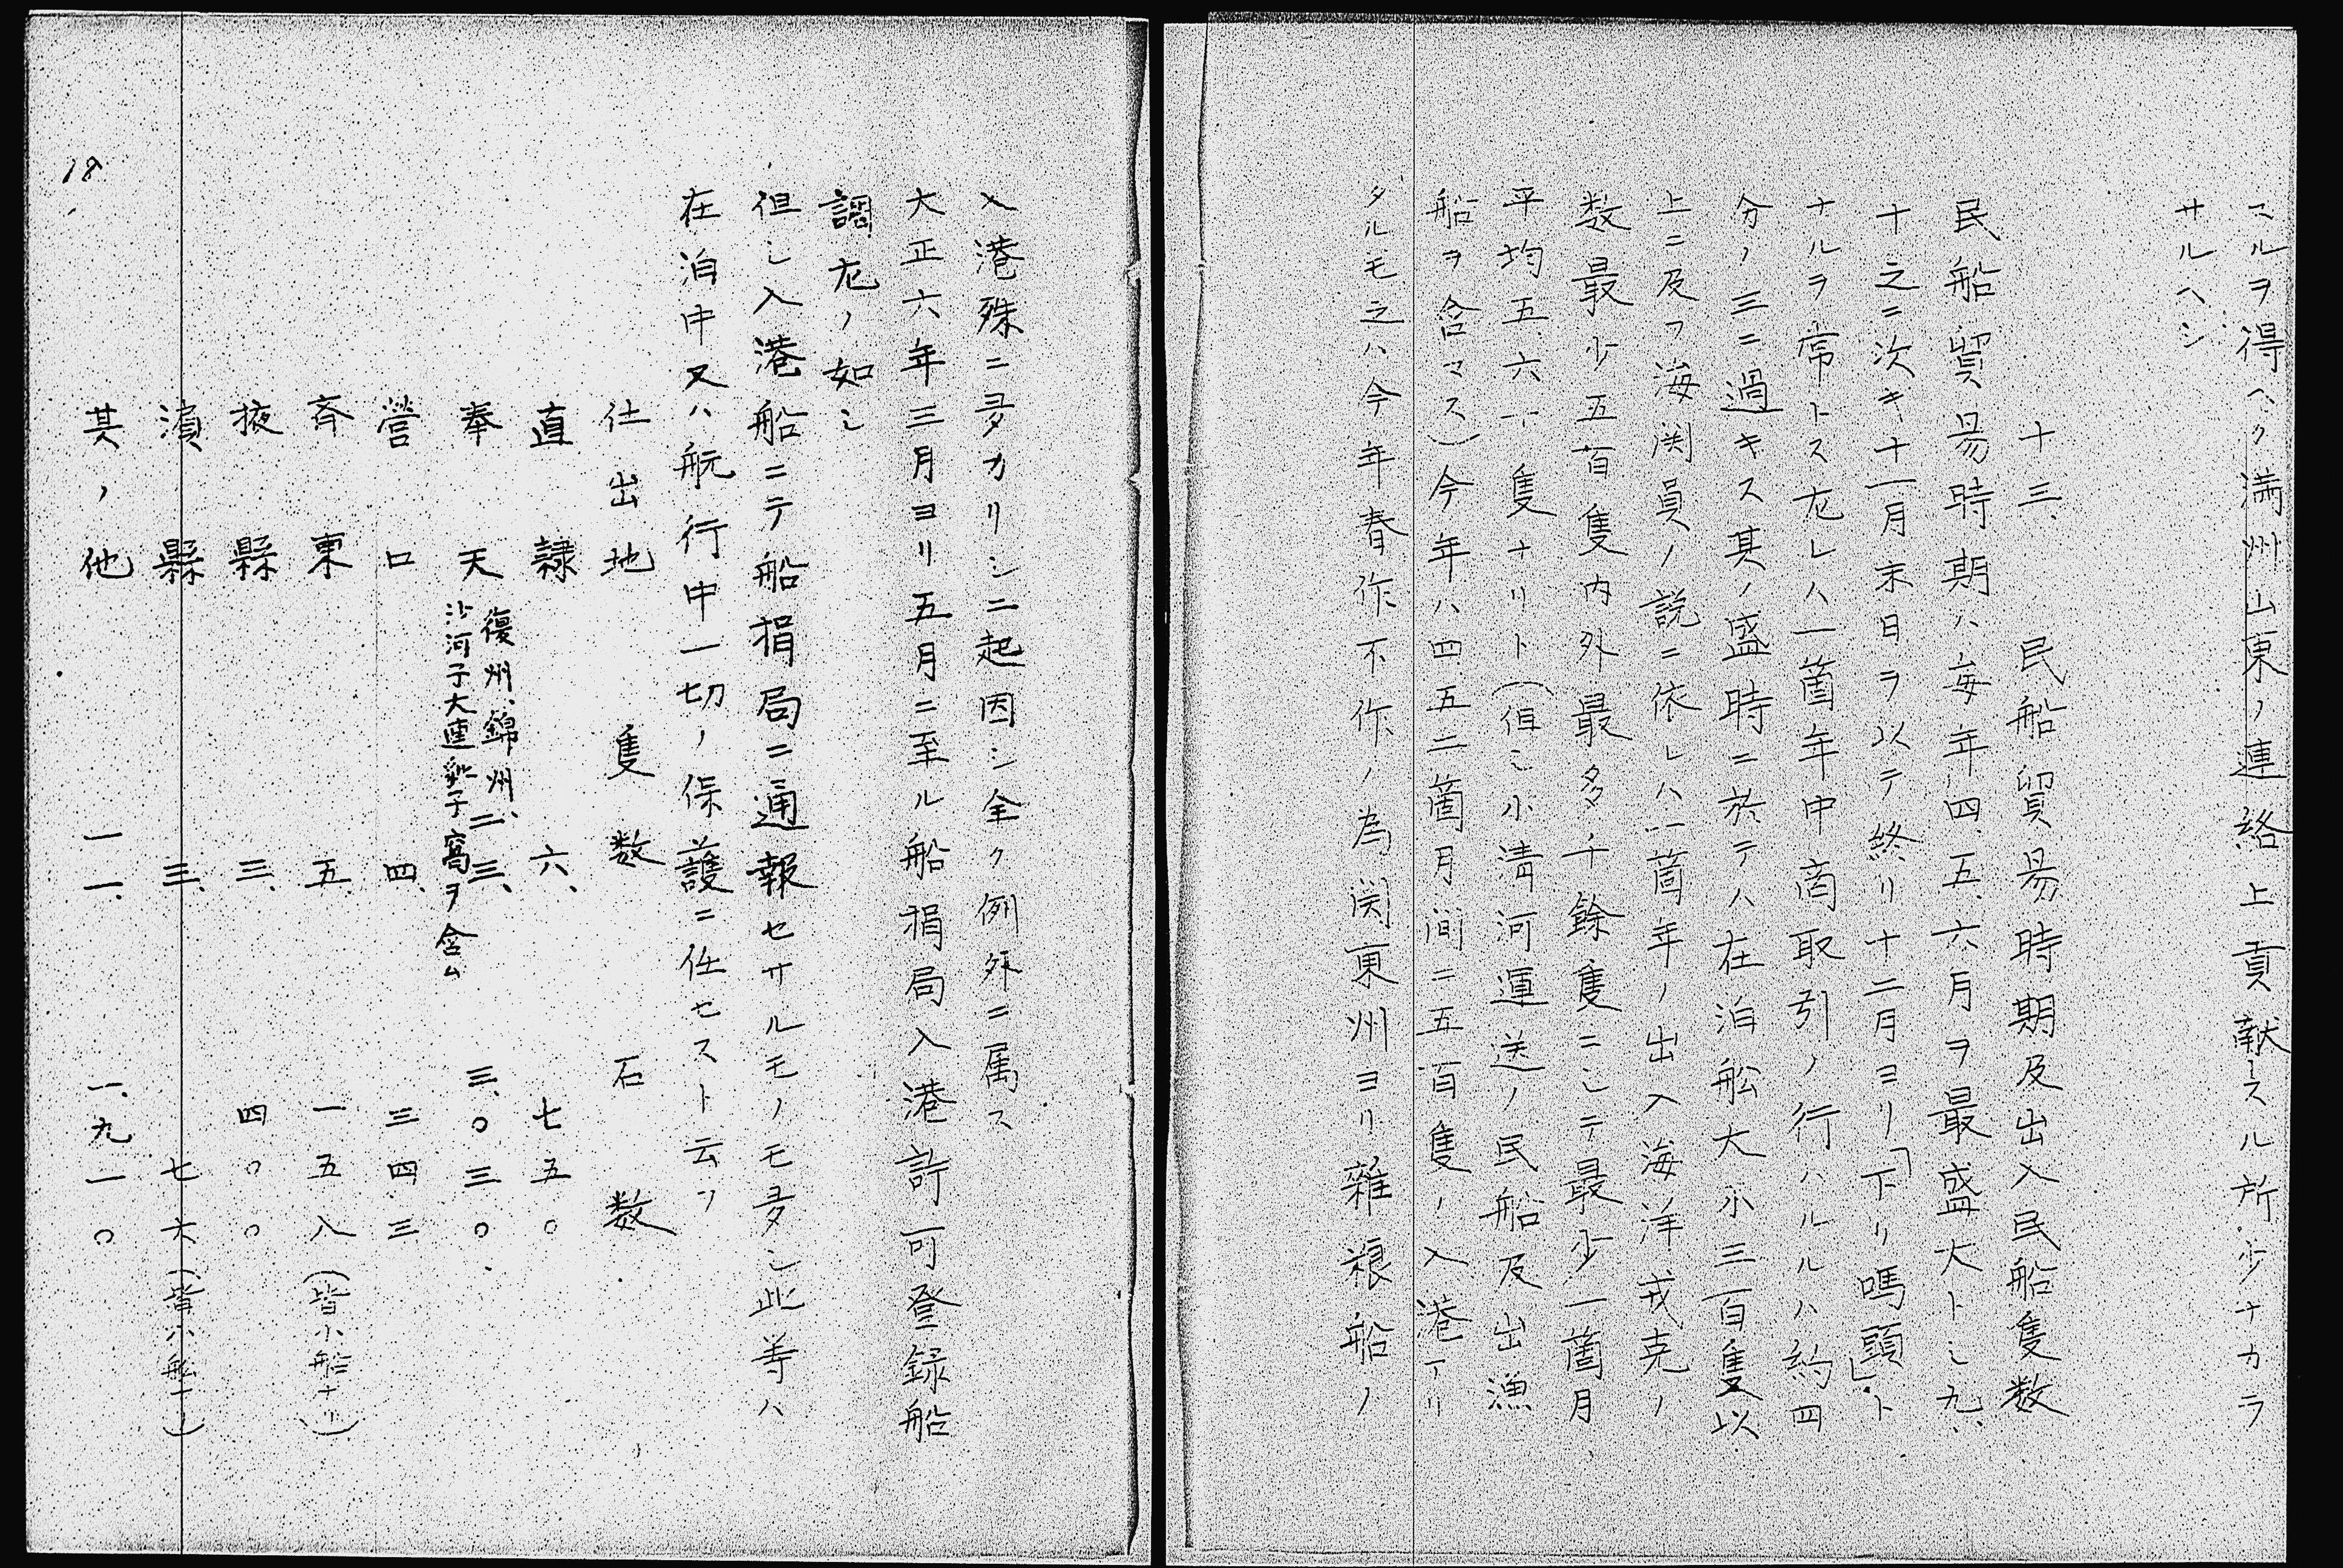 マルヲ得ヘク満洲山東ノ連絡上貢献スル所少ナカラ
サルヘシ
十三、民船貿易時期及出入民船隻数
民船貿易時期ハ毎年四、五、六月ヲ最盛大トシ九、
十之ニ次キ十一月末日ヲ以テ終リ十二月ヨリ「下リ嗎頭」ト
ナルヲ常トス左レハ一箇年中商取引ノ行ハルルハ約四
分ノ三ニ過キス其ノ盛時ニ於テハ在泊舩大小三百隻以
上ニ及フ海関員ノ説ニ依レハ一箇年ノ出入海洋戎克ノ
数最少五百隻内外最多千餘隻ニシテ最少一箇月、
平均五、六十隻ナリト(但シ小清河運送ノ民船及出漁
船ヲ含マス)今年ハ四、五二箇月間ニ五百隻ノ入港アリ
タルモ之ハ今年春作不作ノ為関東州ヨリ雑粮船ノ
入港殊ニ多カリシニ起因シ全ク例外ニ属ス
大正六年三月ヨリ五月ニ至ル船捐局入港許可登録船
調左ノ如シ
但シ入港船ニテ船捐局ニ通報セサルモノモ多シ此等ハ
在泊中又ハ航行中一切ノ保護ニ任セスト云フ
仕出地 隻数 石数
直隷 六、 七五〇
奉天 復州、錦州、沙河子大連貔子窩ヲ含ム 二三、 三、〇三〇、
營口 四、 三四三
斉東 五 一五八(皆小船ナリ)
掖縣 三、 四〇〇
濱縣 三、 七六(皆小船ナリ)
其ノ他 一一、 一、九一〇
18